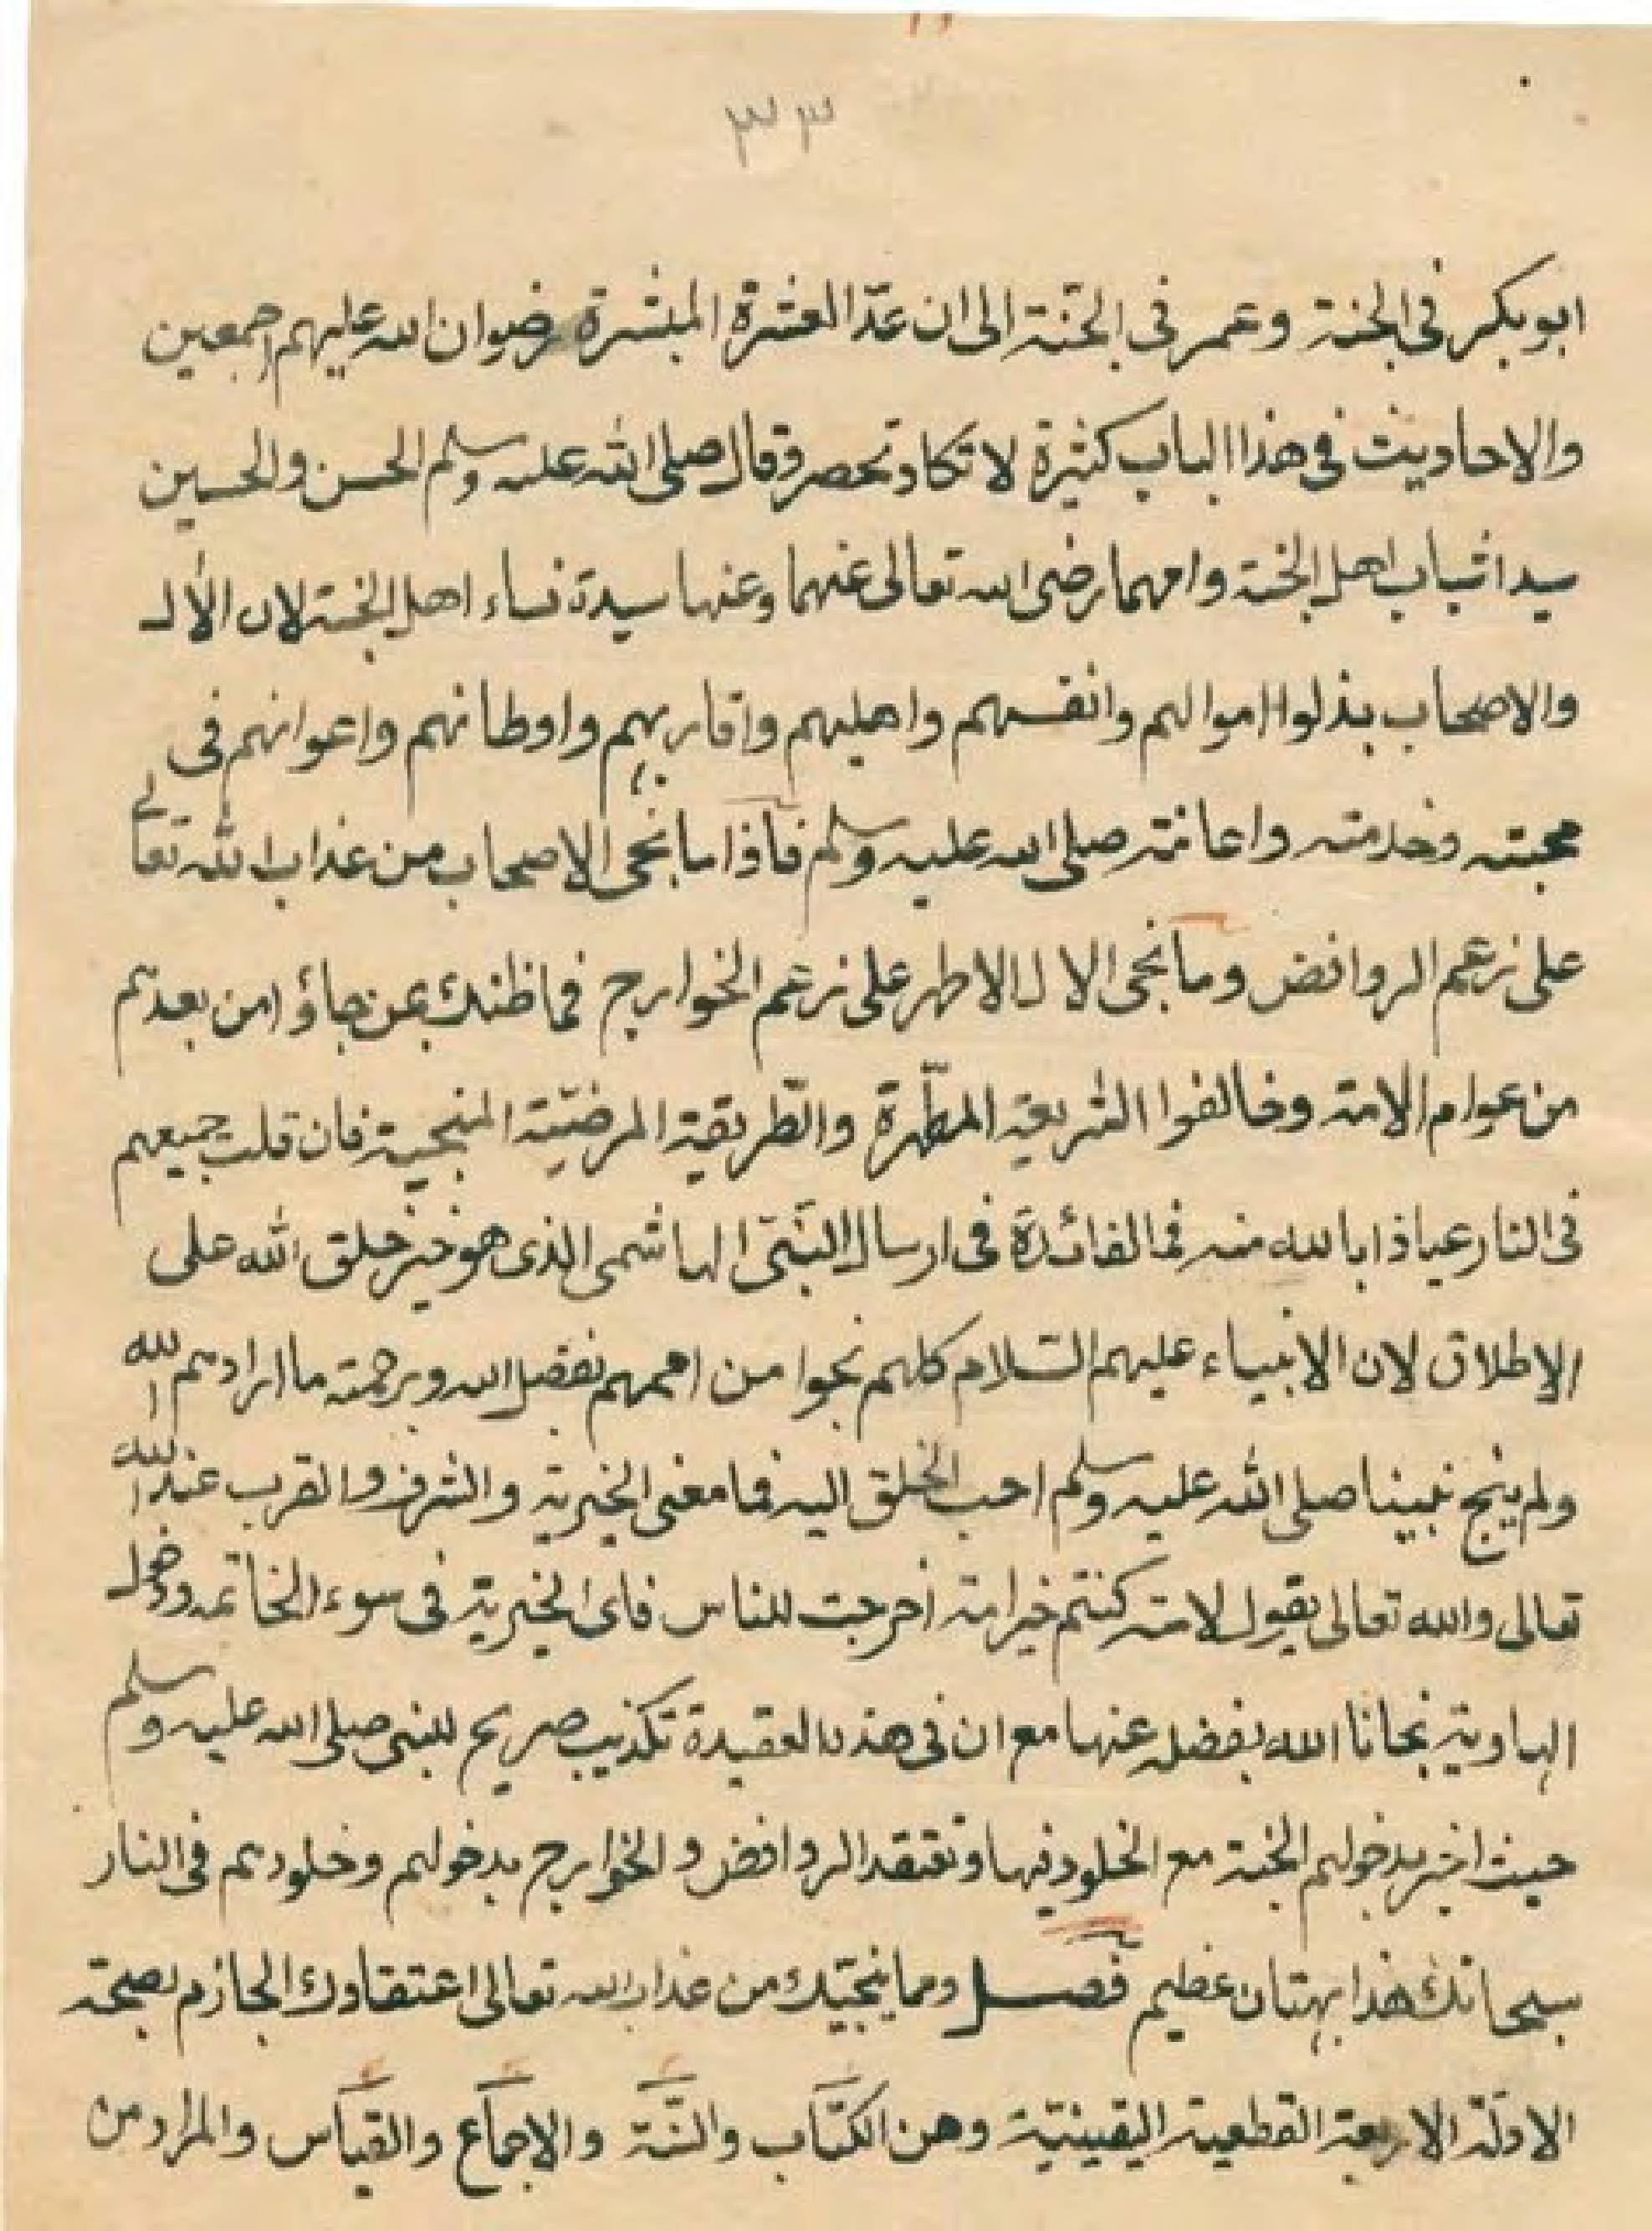 ٣٣
ابو بكر فى الجنة وعمر فى الجنّة الى ان عدّ العشرة المبشرة رضوان الله عليهم اجمعين
والاحاديث فى هذا الباب كثيرة لا تكاد تحصر وقال صلى الله عليه وسلم الحسن والحسين
سيدا شباب اهل الجنة وامهما رضى الله تعالى عنهما وعنها سيدة نساء اهل الجنة لان الأل
والاصحاب بذلوا اموالهم وانفسهم واهليهم واقاربهم واوطانهم واعوانهم فى
محبته وخدمته واعانته صلى الله عليه وسلم فاذا ما نجى الاصحاب من عذاب الله تعالى
على زعم الروافض وما نجى الال الاطهر على زعم الخوارج فما ظنك بمن جاؤا من بعدهم
من عوام الامة وخالفوا الشريعة المطهّرة والطّريقة المرضيّة المنجية فان قلت جميعهم
فى النار عياذا بالله منه فما الفائدة فى ارسال النّبىّ الهاشمى الذى هو خير خلق الله على
الاطلاق لان الانبياء عليهم السّلام كلهم نجوا من اممهم بفضل الله وبرحمته ما ارادهم الله
ولم ينج نبينا صلى الله عليه وسلم احب الخلق اليه فما معنى الخيرية والشرف والقرب عند الله
تعالى والله تعالى يقول لامته كنتم خير امة أخرجت للناس فاى الخيرية فى سوء الخاتمة ودخول
الهاوية نجانا الله بفضله عنها مع ان فى هذه العقيدة تكذيب صريح للنبى صلى الله عليه وسلم
حيث اخبر بدخولهم الجنة مع الخلود فيها وتعتقد الروافض و الخوارج بدخولهم وخلودهم فى النار
سبحانك هذا بهتان عظيم فصل ومما ينجّيك من عذاب الله تعالى اعتقادك الجازم بصحة
الادلّة الاربعة القطعية اليقينيّة وهن الكتاب والسّنّة والاجماع والقياس والمراد من